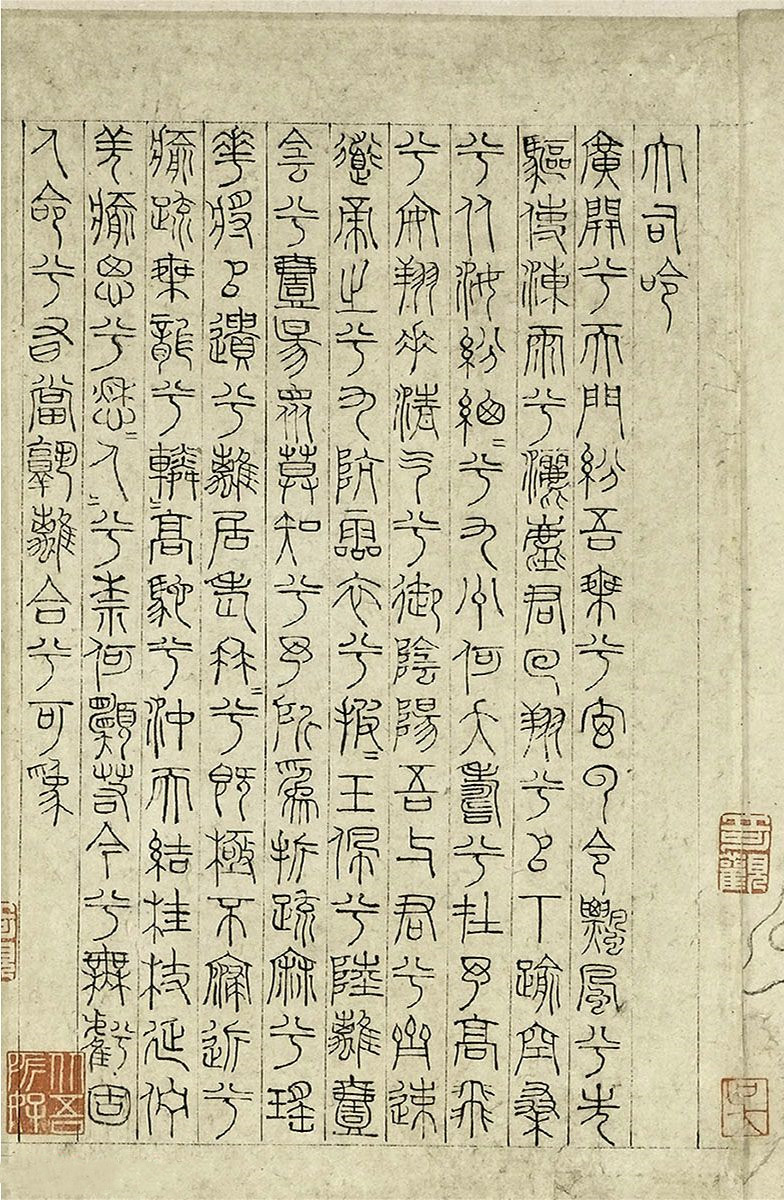 大司命
廣開兮天門紛吾乘兮玄雲令飄風兮先
驅使涷雨兮灑塵君回翔兮㠯下踰空桑
兮从汝紛緫=兮九州何夭壽兮在予高飛
兮安翔乘清气兮御陰陽吾与君兮齊速
導帝之兮九阬靈衣兮披=玉佩兮陸離壹
侌兮壹昜眾莫知兮予所爲折疏麻兮瑤
華將㠯遺兮離居老冉=兮既極不寖近兮
瘉疏乘龍兮轔=高駝兮沖天結桂枝延佇
羌瘉思兮愁=人=兮柰何願若今兮無虧固
人命兮有當孰離合兮可爲